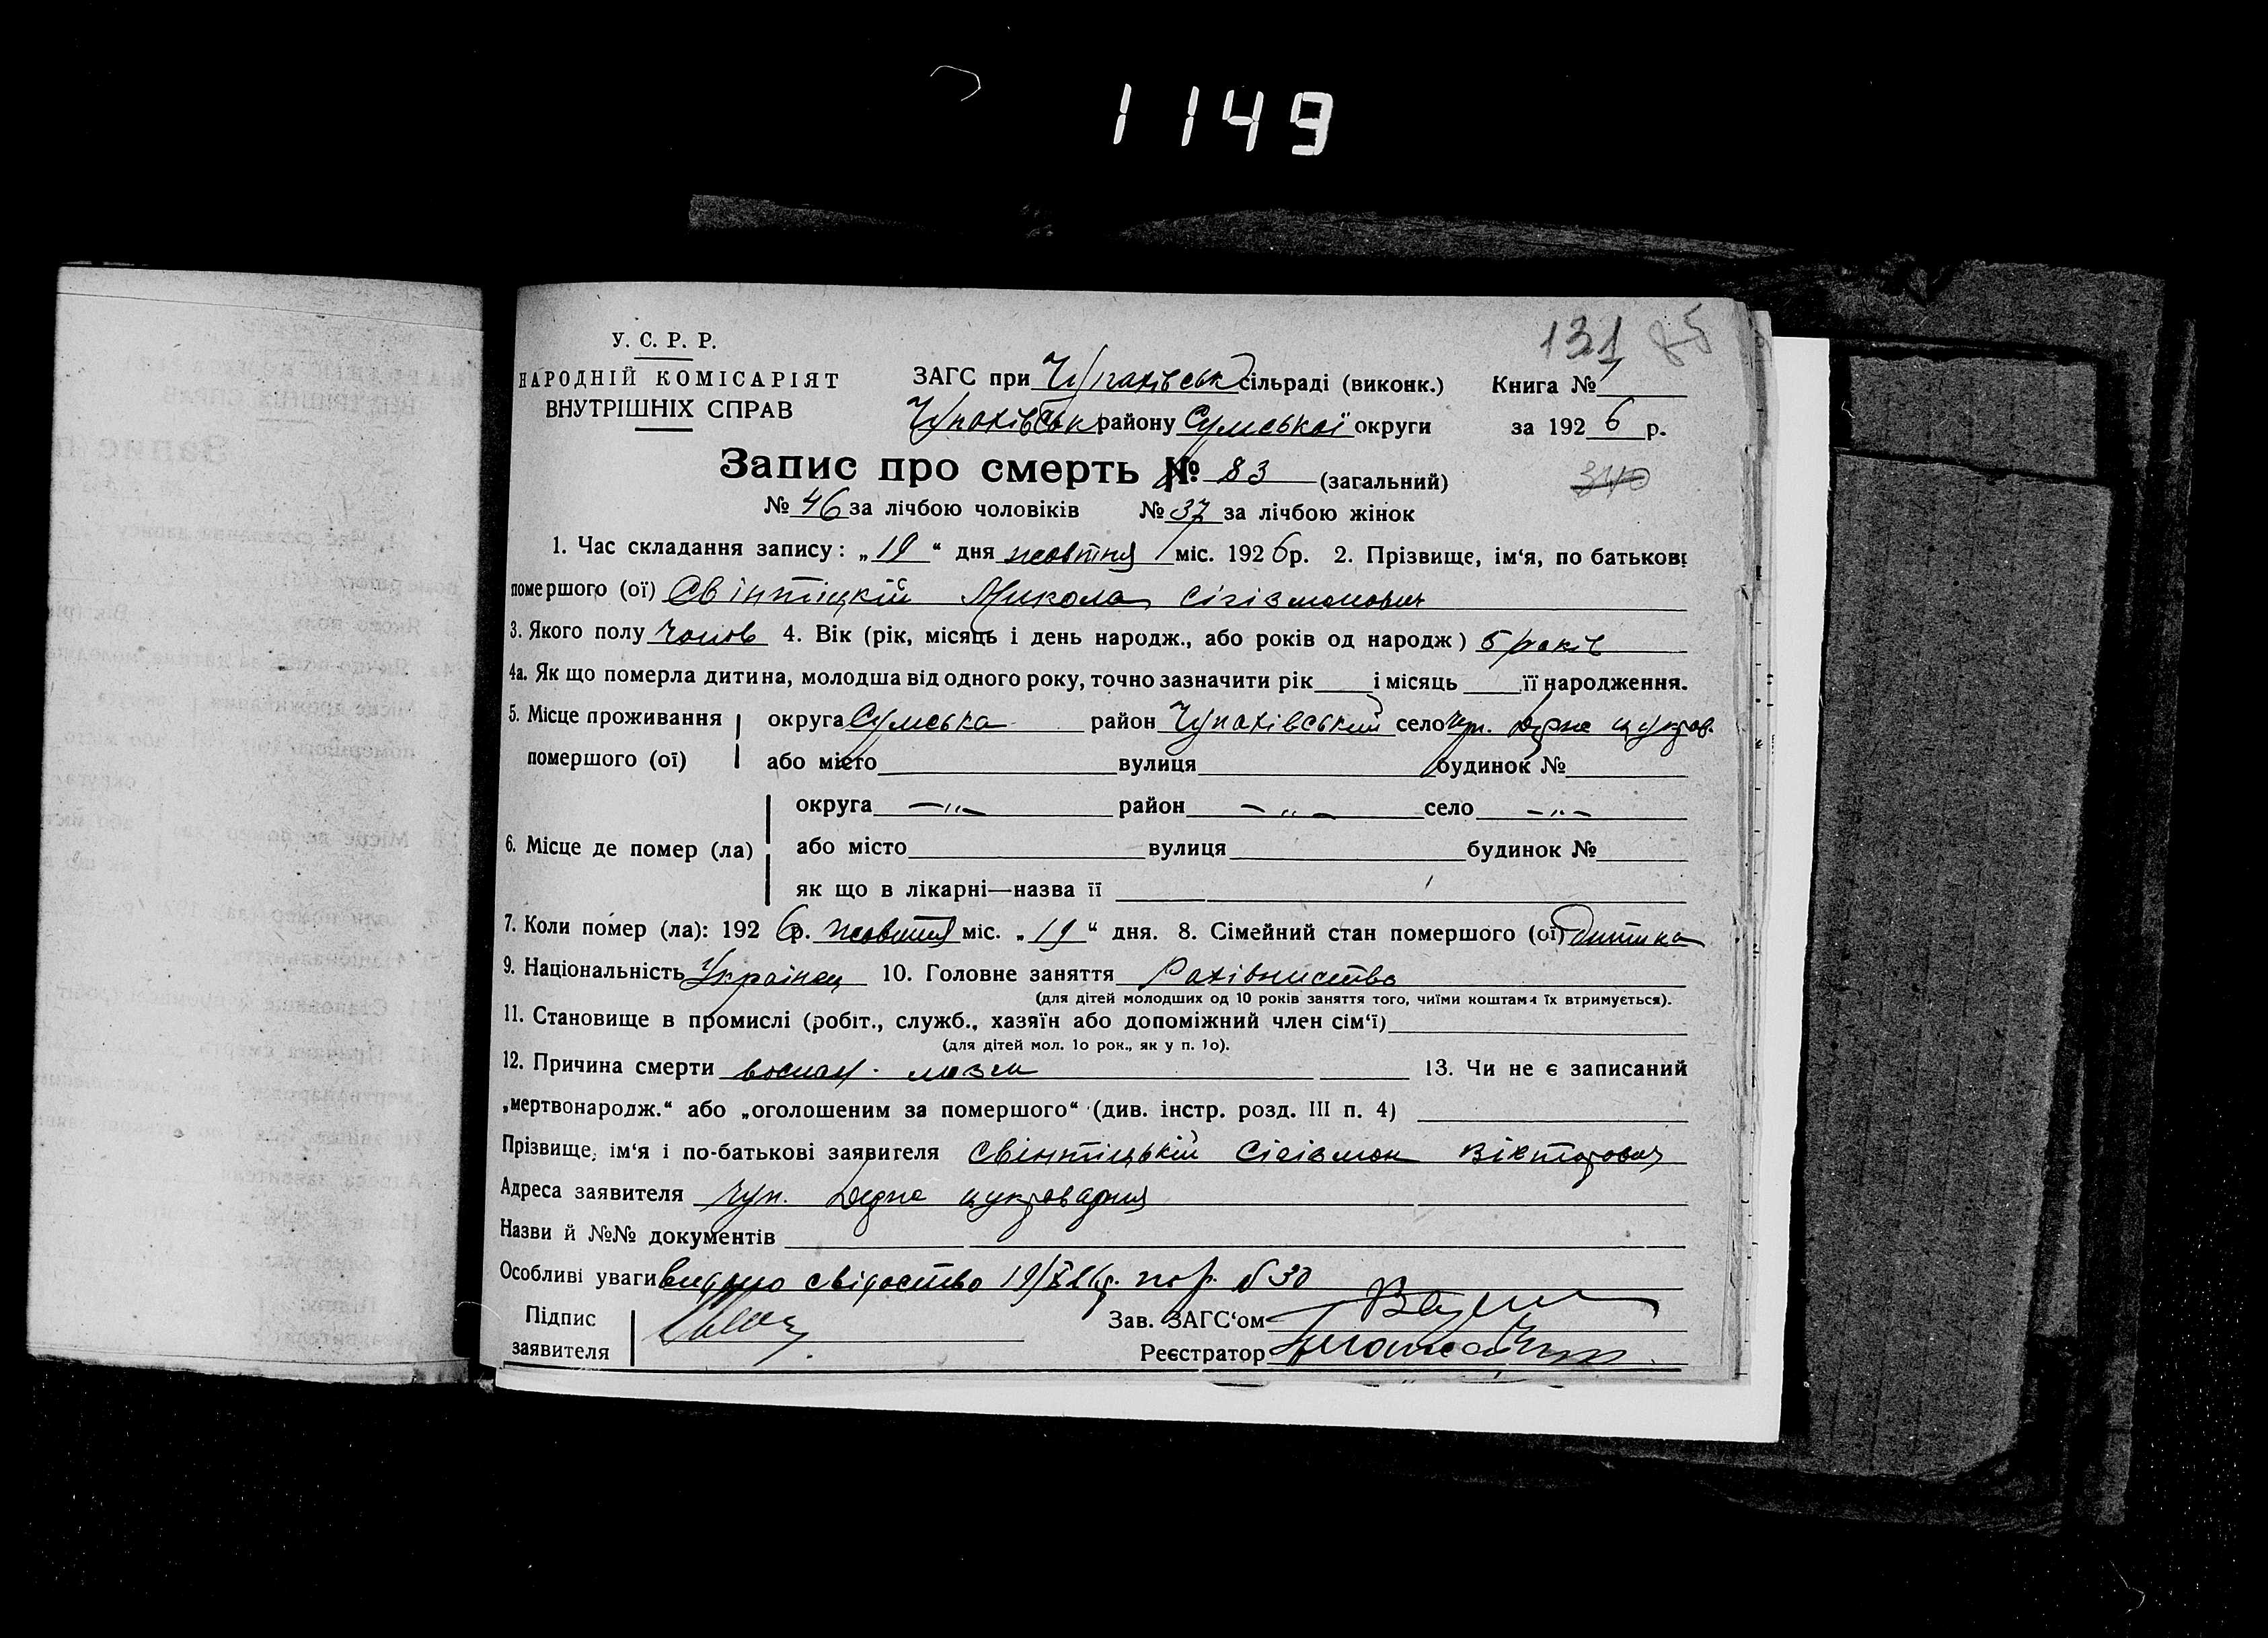 1149
131 85
У. С. Р. Р.
НАРОДНІЙ КОМІСАРІЯТ
ВНУТРІШНІХ СПРАВ
ЗАГС при Чупахівськ сільраді (виконк.) Книга № 1
Чупахівськ району Сумської округи за 1926 р.
Запис про смерть № 83 (загальний) 340
№ 46 за лічбою чоловіків № 37 за лічбою жінок
1. Час складання запису: „19“ дня жовтня міс. 1926 р. 2. Прізвище, ім‘я, по батькові
помершого (ої) Свінтіцкій Микола Сігізмонович
3. Якого полу Чолов 4. Вік (рік, місяць і день народж., або років од народж) 5 років
4а. Як що померла дитина, молодша від одного року, точно зазначити рік і місяць її народження.
5. Місце проживання помершого (ої) округа Сумська район Чупахівський село Чуп. Держ цукров.
або місто вулиця будинок №
6. Місце де помер (ла) округа —„— район —„— село —„—
або місто вулиця будинок №
як що в лікарні—назва її
7. Коли помер (ла): 1926 р. жовтня міс. „19“ дня. 8. Сімейний стан помершого (ої) Дитина
9. Національність Українец 10. Головне заняття Рахівництво
(для дітей молодших од 10 років заняття того, чиїми коштами їх втримується).
11. Становище в промислі (робіт., служб., хазяїн або допоміжний член сім‘ї)
(для дітей мол. 1о рок., як у п. 1о).
12. Причина смерти воспал. мозги 13. Чи не є записаний
„мертвонародж.“ або „оголошеним за помершого“ (див. інстр. розд. III п. 4)
Прізвище, ім‘я і по-батькові заявителя Свінтіцькій Сігізмон Вікторович
Адреса заявителя Чуп. Держ цукроварня
Назви й №№ документів
Особливі уваги видано свідоство 19/X 26р. по р. № 30
Підпис заявителя
Зав. ЗАГС‘ом
Реєстратор